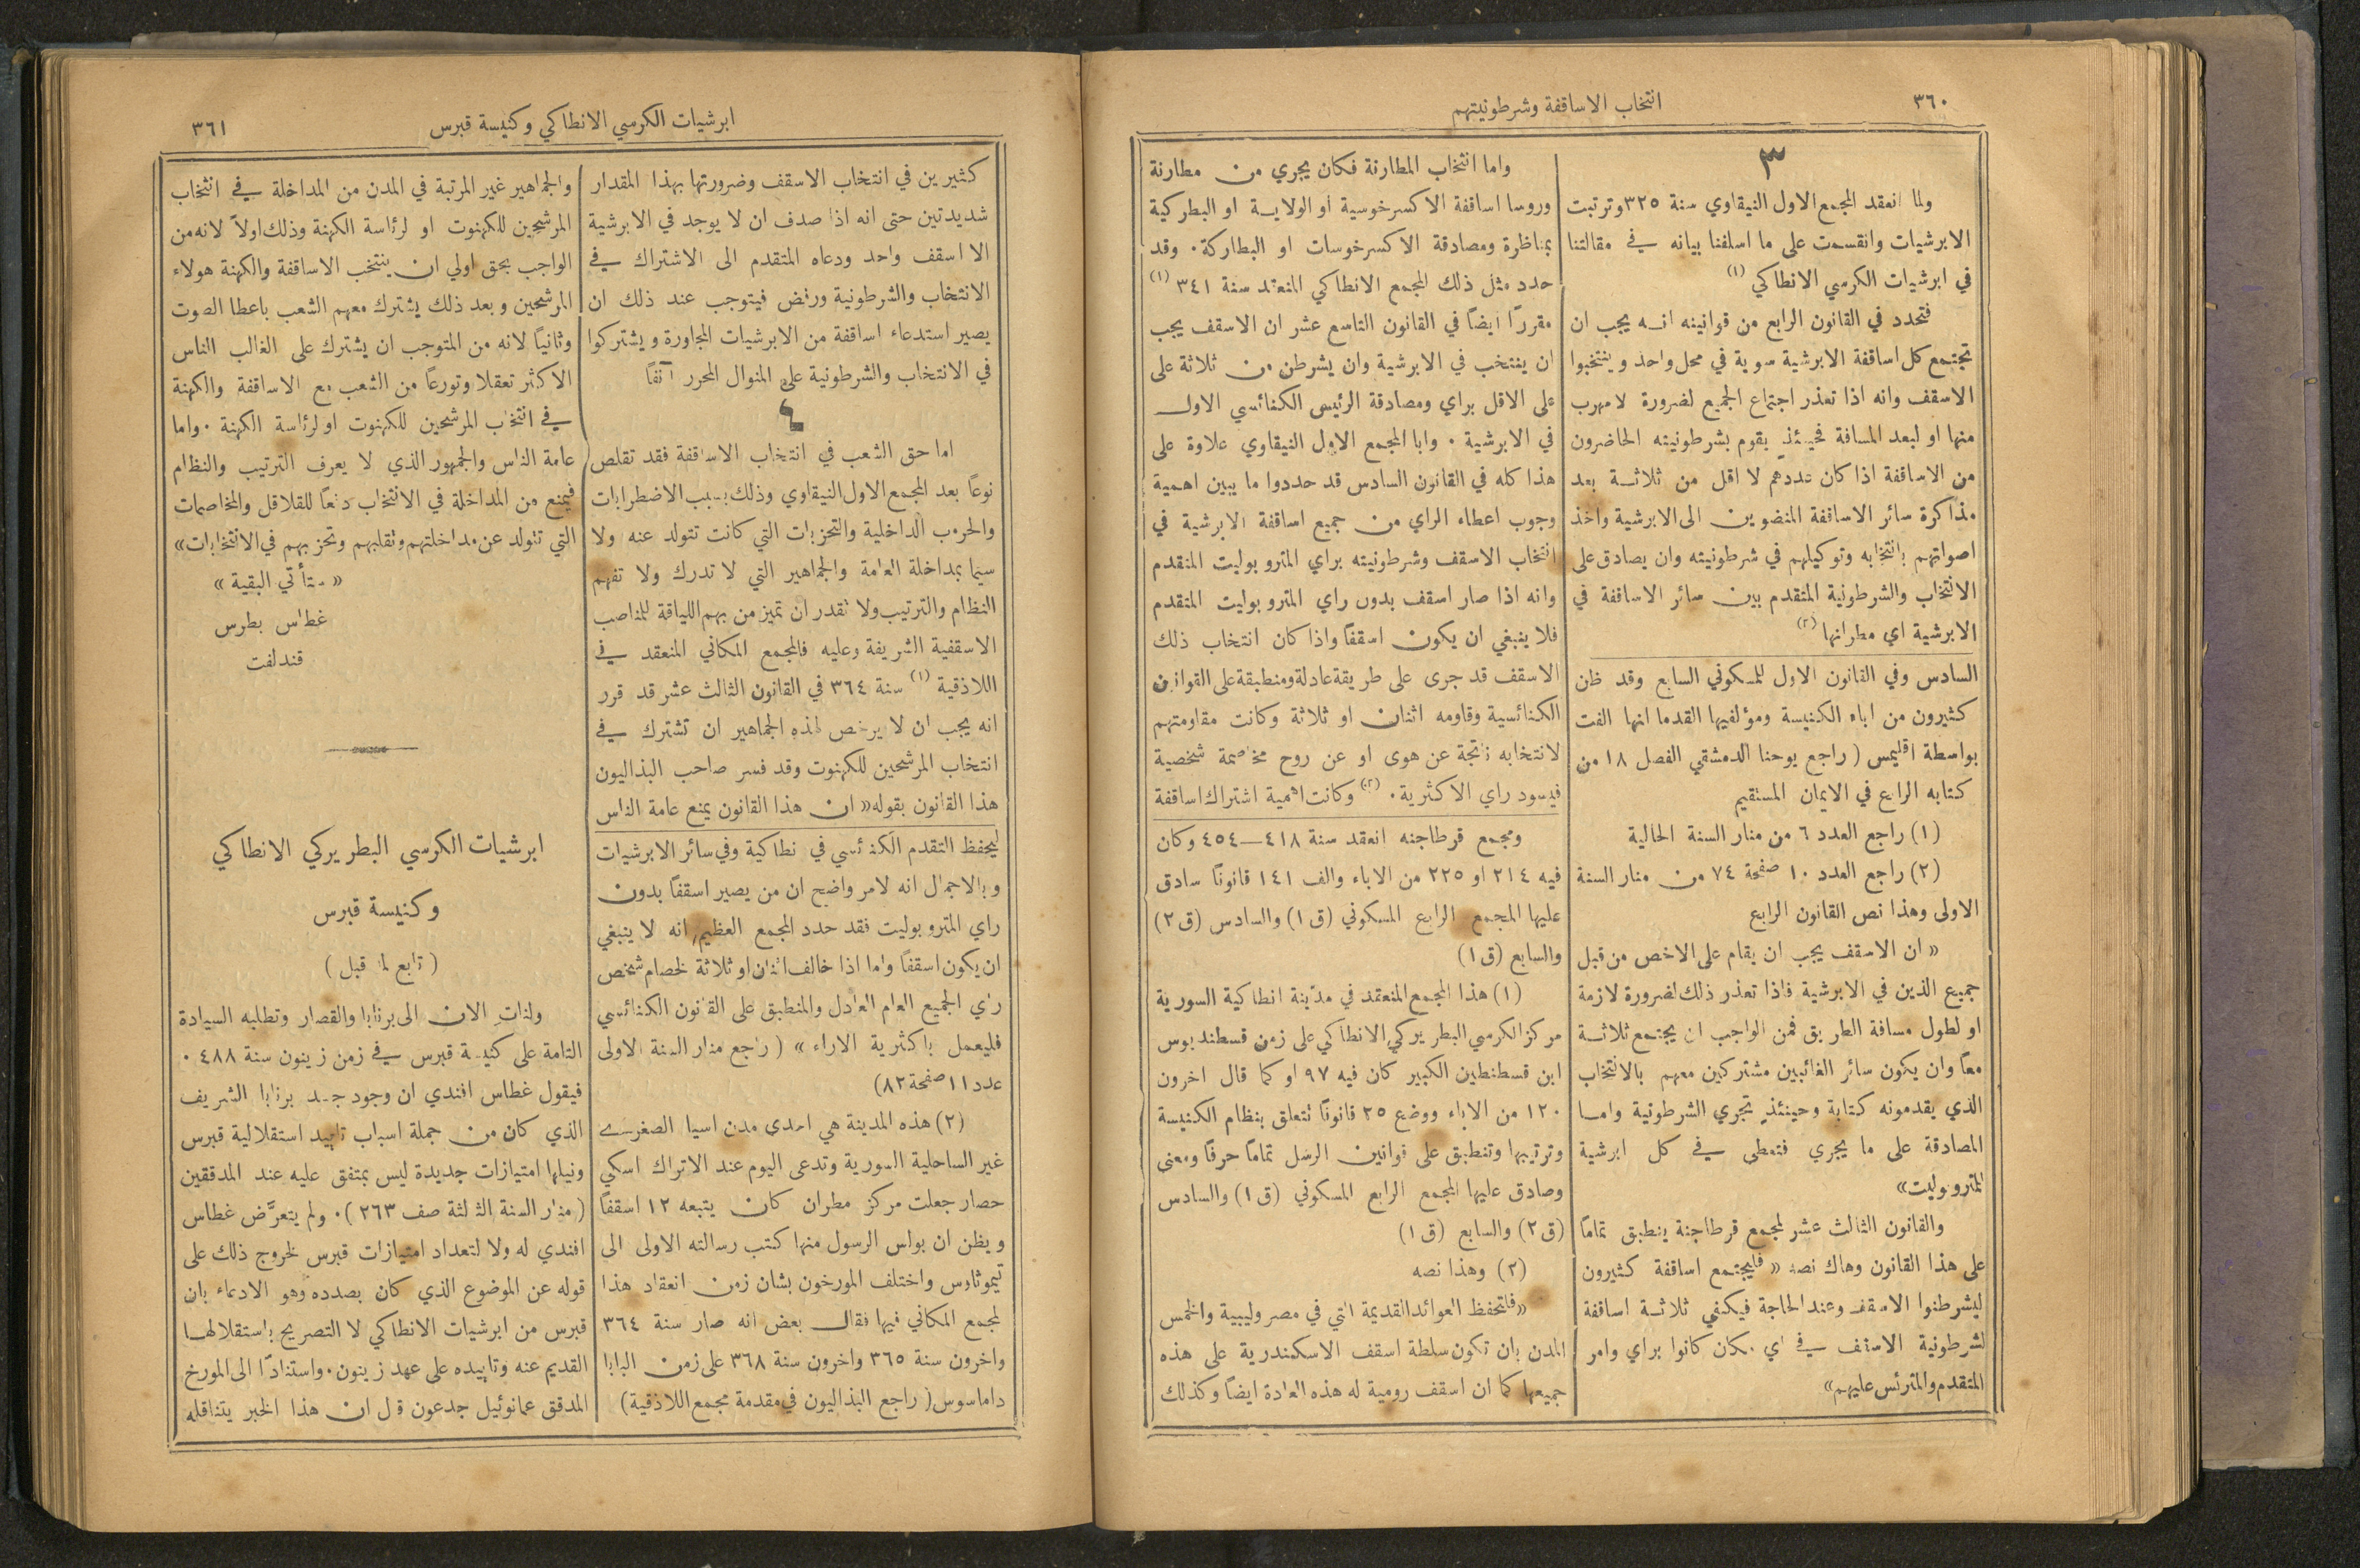 ٣٦٠
انتخاب الاساقفة وشرطونيتهم
٣
ولما انعقد المجمع الاول النيقاوي سنة ٣٢٥ وترتبت
الابرشيات وانقسمت على ما اسلفنا بيانه في مقالتنا
في ابرشيات الكرسي الانطاكي (١)
فتحدد في القانون الرابع من قوانينه انه يجب ان
تجتمع كل اساقفة الابرشية سوية في محل واحد وينتخبوا
الاسقف وانه اذا تعذر اجتماع الجميع لضرورة لا مهرب
منها او لبعد المسافة فحينئذٍ يقوم بشرطونيته الحاضرون
من الاساقفة اذا كان عددهم لا اقل من ثلاثة بعد
مذاكرة سائر الاساقفة المنضوين الى الابرشية واخذ
اصواتهم بانتخابه وتوكيلهم في شرطونيته وان يصادق على
الانتخاب والشرطونية المتقدم بين سائر الاساقفة في
الابرشية اي مطرانها (٢)
السادس وفي القانون الاول للمسكوني السابع وقد ظن
كثيرون من اباء الكنيسة ومؤلفيها القدما انها الفت
بواسطة اقليمس (راجع يوحنا الدمشقي الفصل ١٨ من
كتابه الرابع في الايمان المستقيم
(١) راجع العدد ٦ من منار السنة الحالية
(٢) راجع العدد ١٠ صفحة ٧٤ من منار السنة
الاولى وهذا نص القانون الرابع
« ان الاسقف يجب ان يقام على الاخص من قبل
جميع الذين في الابرشية فاذا تعذر ذلك لضرورة لازمة
او لطول مسافة الطريق فمن الواجب ان يجتمع ثلاثة
معاً وان يكون سائر الغائبين مشتركين معهم بالانتخاب
الذي يقدمونه كتابة وحينئذٍ تجري الشرطونية واما
المصادقة على ما يجري فتعطى في كل ابرشية
للمتروبوليت»
والقانون الثالث عشر لمجمع قرطاجنة ينطبق تماماً
على هذا القانون وهاك نصه « فليجتمع اساقفة كثيرون
ليشرطنوا الاسقف وعند الحاجة فيكفي ثلاثة اساقفة
لشرطونية الاسقف في اي مكان كانوا براي وامر
المتقدم والمترئس عليهم»
واما انتخاب المطارنة فكان يجري من مطارنة
وروسا اساقفة الاكسرخوسية او الولاية او البطركية
بمناظرة ومصادقة الاكسرخوسات او البطاركة. وقد
حدد مثل ذلك المجمع الانطاكي المنعقد سنة ٣٤١ (١)
مقرراً ايضاً في القانون التاسع عشر ان الاسقف يجب
ان ينتخب في الابرشية وان يشرطن من ثلاثة على
على الاقل براي ومصادقة الرئيس الكنائسي الاول
في الابرشية. وابا المجمع الاول النيقاوي علاوة على
هذا كله في القانون السادس قد حددوا ما يبين اهمية
وجوب اعطاء الراي من جميع اساقفة الابرشية في
انتخاب الاسقف وشرطونيته براي المتروبوليت المتقدم
وانه اذا صار اسقف بدون راي المتروبوليت المتقدم
فلا ينبغي ان يكون اسقفاً واذا كان انتخاب ذلك
الاسقف قد جرى على طريقة عادلة ومنطبقة على القوانين
الكنائسية وقاومه اثنان او ثلاثة وكانت مقاومتهم
لانتخابه ناتجة عن هوى او عن روح مخاصمة شخصية
فيسود راي الاكثرية. (٢) وكانت اهمية اشتراك اساقفة
ومجمع قرطاجنه انعقد سنة ٤١٨—٤٥٤ وكان
فيه ٢١٤ او ٢٢٥ من الاباء والف ١٤١ قانوناً سادق
عليها المجمع الرابع المسكوني (ق ١) والسادس (ق ٢)
والسابع (ق ١)
(١) هذا المجمع المنعقد في مدينة انطاكية السورية
مركز الكرسي البطريركي الانطاكي على زمن قسطنديوس
ابن قسطنطين الكبير كان فيه ٩٧ او كما قال اخرون
١٢٠ من الاباء ووضع ٢٥ قانوناً تتعلق بنظام الكنيسة
وترتيبها وتنطبق على قوانين الرسل تماماً حرفاً ومعنى
وصادق عليها المجمع الرابع المسكوني (ق ١) والسادس
(ق ٢) والسابع (ق ١)
(٢) وهذا نصه
« فلتحفظ العوائد القديمة التي في مصر وليبية والخمس
المدن بان تكون سلطة اسقف الاسكندرية على هذه
جميعها كما ان اسقف رومية له هذه العادة ايضاً وكذلك
ابرشيات الكرسي الانطاكي وكنيسة قبرس
٣٦١
كثيرين في انتخاب الاسقف وضرورتها بهذا المقدار
شديدتين حتى انه اذا صدف ان لا يوجد في الابرشية
الا اسقف واحد ودعاه المتقدم الى الاشتراك في
الانتخاب والشرطونية ورفض فيتوجب عند ذلك ان
يصير استدعاء اساقفة من الابرشيات المجاورة ويشتركوا
في الانتخاب والشرطونية على المنوال المحرر آنفاً
٤
اما حق الشعب في انتخاب الاساقفة فقد تقلص
نوعاً بعد المجمع الاول النيقاوي وذلك بسبب الاضطرابات
والحروب الداخلية والتحزبات التي كانت تتولد عنه ولا
سيما بمداخلة العامة والجماهير التي لا تدرك ولا تفهم
النظام والترتيب ولا تقدر ان تميز من بهم اللياقة للمناصب
الاسقفية الشريفة وعليه فالمجمع المكاني المنعقد في
اللاذقية (١) سنة ٣٦٤ في القانون الثالث عشر قد قرر
انه يجب ان لا يرخص لهذه الجماهير ان تشترك في
انتخاب المرشحين للكهنوت وقد فسر صاحب البذاليون
هذا القانون بقوله « ان هذا القانون يمنع عامة الناس
ليحفظ التقدم الكنائسي في انطاكية وفي سائر الابرشيات
وبالاجمال انه لامر واضح ان من يصير اسقفاً بدون
راي المتروبوليت فقد حدد المجمع العظيم انه لا ينبغي
ان يكون اسقفاً واما اذا خالف اثنان او ثلاثة لخصام شخص
راي الجميع العام العادل والمنطبق على القانون الكنائسي
فليعمل باكثرية الاراء » (راجع منار السنة الاولى
عدد ١١ صفحة ٨٢)
(٢) هذه المدينة هي احدى مدن اسيا الصغرى
غير الساحلية السورية وتدعى اليوم عند الاتراك اسكي
حصار جعلت مركز مطران كان يتبعه ١٢ اسقفاً
ويظن ان بولس الرسول منها كتب رسالته الاولى الى
تيموثاوس واختلف المورخون بشان زمن انعقاد هذا
لمجمع المكاني فيها فقال بعض انه صار سنة ٣٦٤
واخرون سنة ٣٦٥ واخرون سنة ٣٦٨ على زمن البابا
داماسوس (راجع البذاليون في مقدمة مجمع اللاذقية)
والجماهير غير المرتبة في المدن من المداخلة في انتخاب
المرشحين للكهنوت او لرئاسة الكهنة وذلك اولاً لانه من
الواجب بحق اولي ان ينتخب الاساقفة والكهنة هولاء
المرشحين وبعد ذلك يشترك معهم الشعب باعطا الصوت
وثانياً لانه من المتوجب ان يشترك على الغالب الناس
الاكثر تعقلا وتورعاً من الشعب مع الاساقفة والكهنة
في انتخاب المرشحين للكهنوت او لرئاسة الكهنة. واما
عامة الناس والجمهور الذي لا يعرف الترتيب والنظام
فيمنع من المداخلة في الانتخاب دفعاً للقلاقل والمخاصمات
التي تتولد عن مداخلتهم وتقلبهم وتحزبهم في الانتخابات»
« ستأتي البقية »
غطاس بطرس
قندلفت
ابرشيات الكرسي البطريركي الانطاكي
وكنيسة قبرس
( تابع لما قبل )
ولنات الان الى برنابا والقصار وتطلبه السيادة
التامة على كنيسة قبرس في زمن زينون سنة ٤٨٨.
فيقول غطاس افندي ان وجود جسد برنابا الشريف
الذي كان من جملة اسباب تاييد استقلالية قبرس
ونيلها امتيازات جديدة ليس بمتفق عليه عند المدققين
(منار السنة الثالثة صف ٢٦٣). ولم يتعرَّض غطاس
افندي له ولا لتعداد امتيازات قبرس لخروج ذلك على
قوله عن الموضوع الذي كان بصدده وهو الادعاء بان
قبرس من ابرشيات الانطاكي لا التصريح باستقلالها
القديم عنه وتاييده على عهد زينون. واستناداً الى المورخ
المدقق عمانوئيل جدعون قال ان هذا الخبر يتناقله